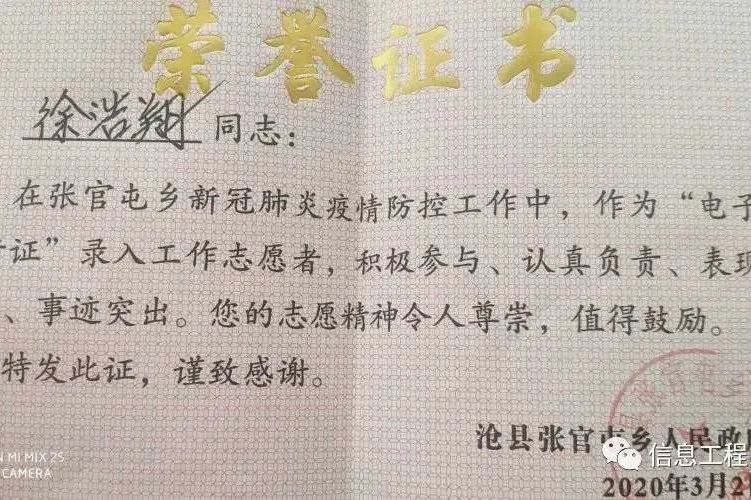 荣誉证书
徐浩翔 同志：
在张官屯乡新冠肺炎疫情防控工作中，作为“电子
证”录入工作志愿者，积极参与、认真负责、表现
、事迹突出。您的志愿精神令人尊崇，值得鼓励。
特发此证，谨致感谢。
张官屯
沧县张官屯乡人民政府
信息工程
2020年3月2
MI MIX 2S
CAMERA